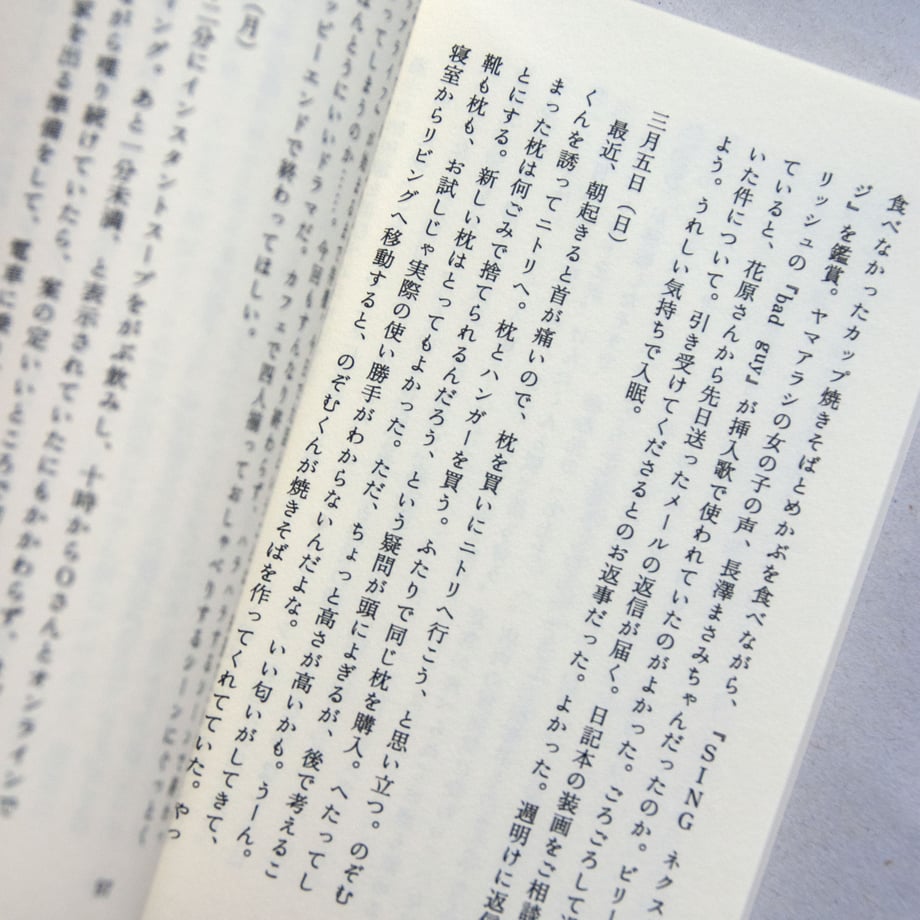 食べなかったカップ焼きそばとめかぶを食べながら、『SING ネクス
ジ』を鑑賞。ヤマアラシの女の子の声、長澤まさみちゃんだったのか。ビリー
リッシュの『bad guy』が挿入歌で使われていたのがよかった。ごろごろして
ていると、花原さんから先日送ったメールの返信が届く。日記本の装画をご相談
いた件について。引き受けてくださるとのお返事だった。よかった。週明けに返信
よう。うれしい気持ちで入眠。
三月五日（日）
最近、朝起きると首が痛いので、枕を買いにニトリへ行こう、と思い立つ。のぞむ
くんを誘ってニトリへ。枕とハンガーを買う。ふたりで同じ枕を購入。へたってし
まった枕は何ごみで捨てられるんだろう、という疑問が頭によぎるが、後で考えるこ
とにする。新しい枕はとってもよかった。ただ、ちょっと高さが高いかも。うーん。
靴も枕も、お試しじゃ実際の使い勝手がわからないんだよな。いい匂いがしてきて、
寝室からリビングへ移動すると、のぞむくんが焼きそばを作ってくれていた。やっ
ってしまうのか……。今回もすんなり終わらず、ハラハラする
ほんとうにいいドラマだ。カフェで四人揃っておしゃべりするシーン
ッピーエンドで終わってほしい。
（月）
二分にインスタントスープをがぶ飲みし、十時からOさんとオンラインで
ング。あと一分未満、と表示されていたにもかかわらず、
がら喋り続けていたら、案の定いいところで
家を出る準備をして、電車に